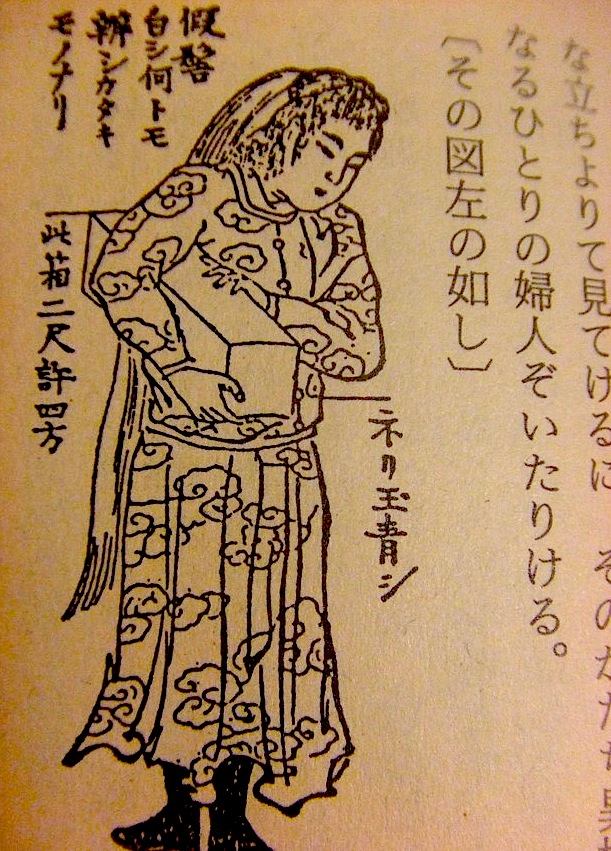 な立ちよりて見てけるに、そのかたち
なるひとりの婦人ぞいたりける。
〔その図左の如し〕
假髻
白シ何トモ
辨シカタキ
モノナリ
ネリ玉青シ
此箱二尺許四方